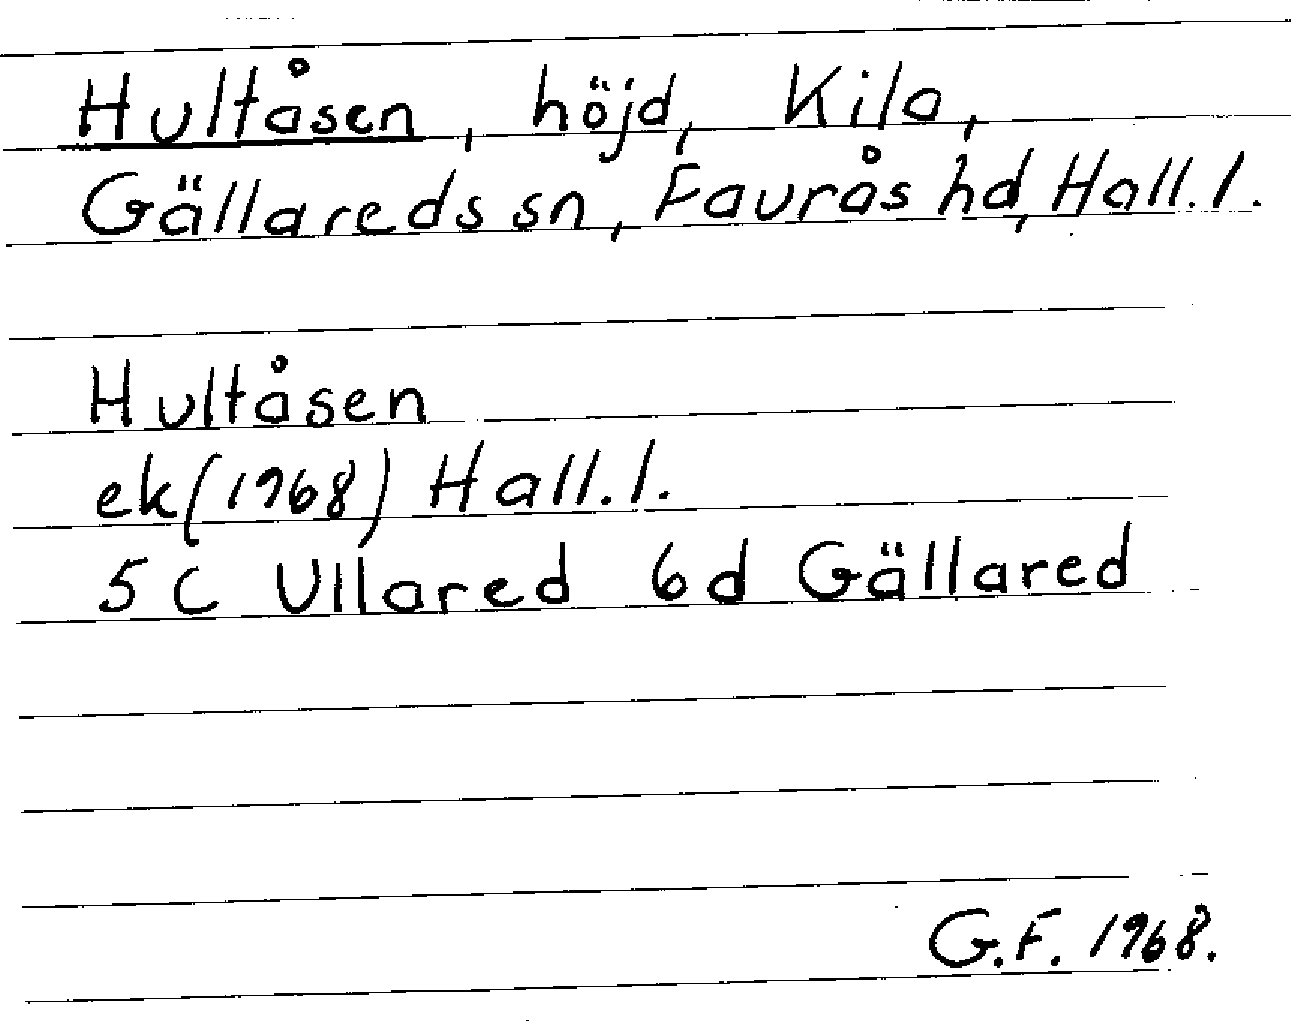 Hultåsen, höjd, Kila,
Gällareds sn, Faurås hd, Hall. l.
Hultåsen
ek (1968) Hall. l.
5 C Ullared 6 d Gällared
G.F. 1968.